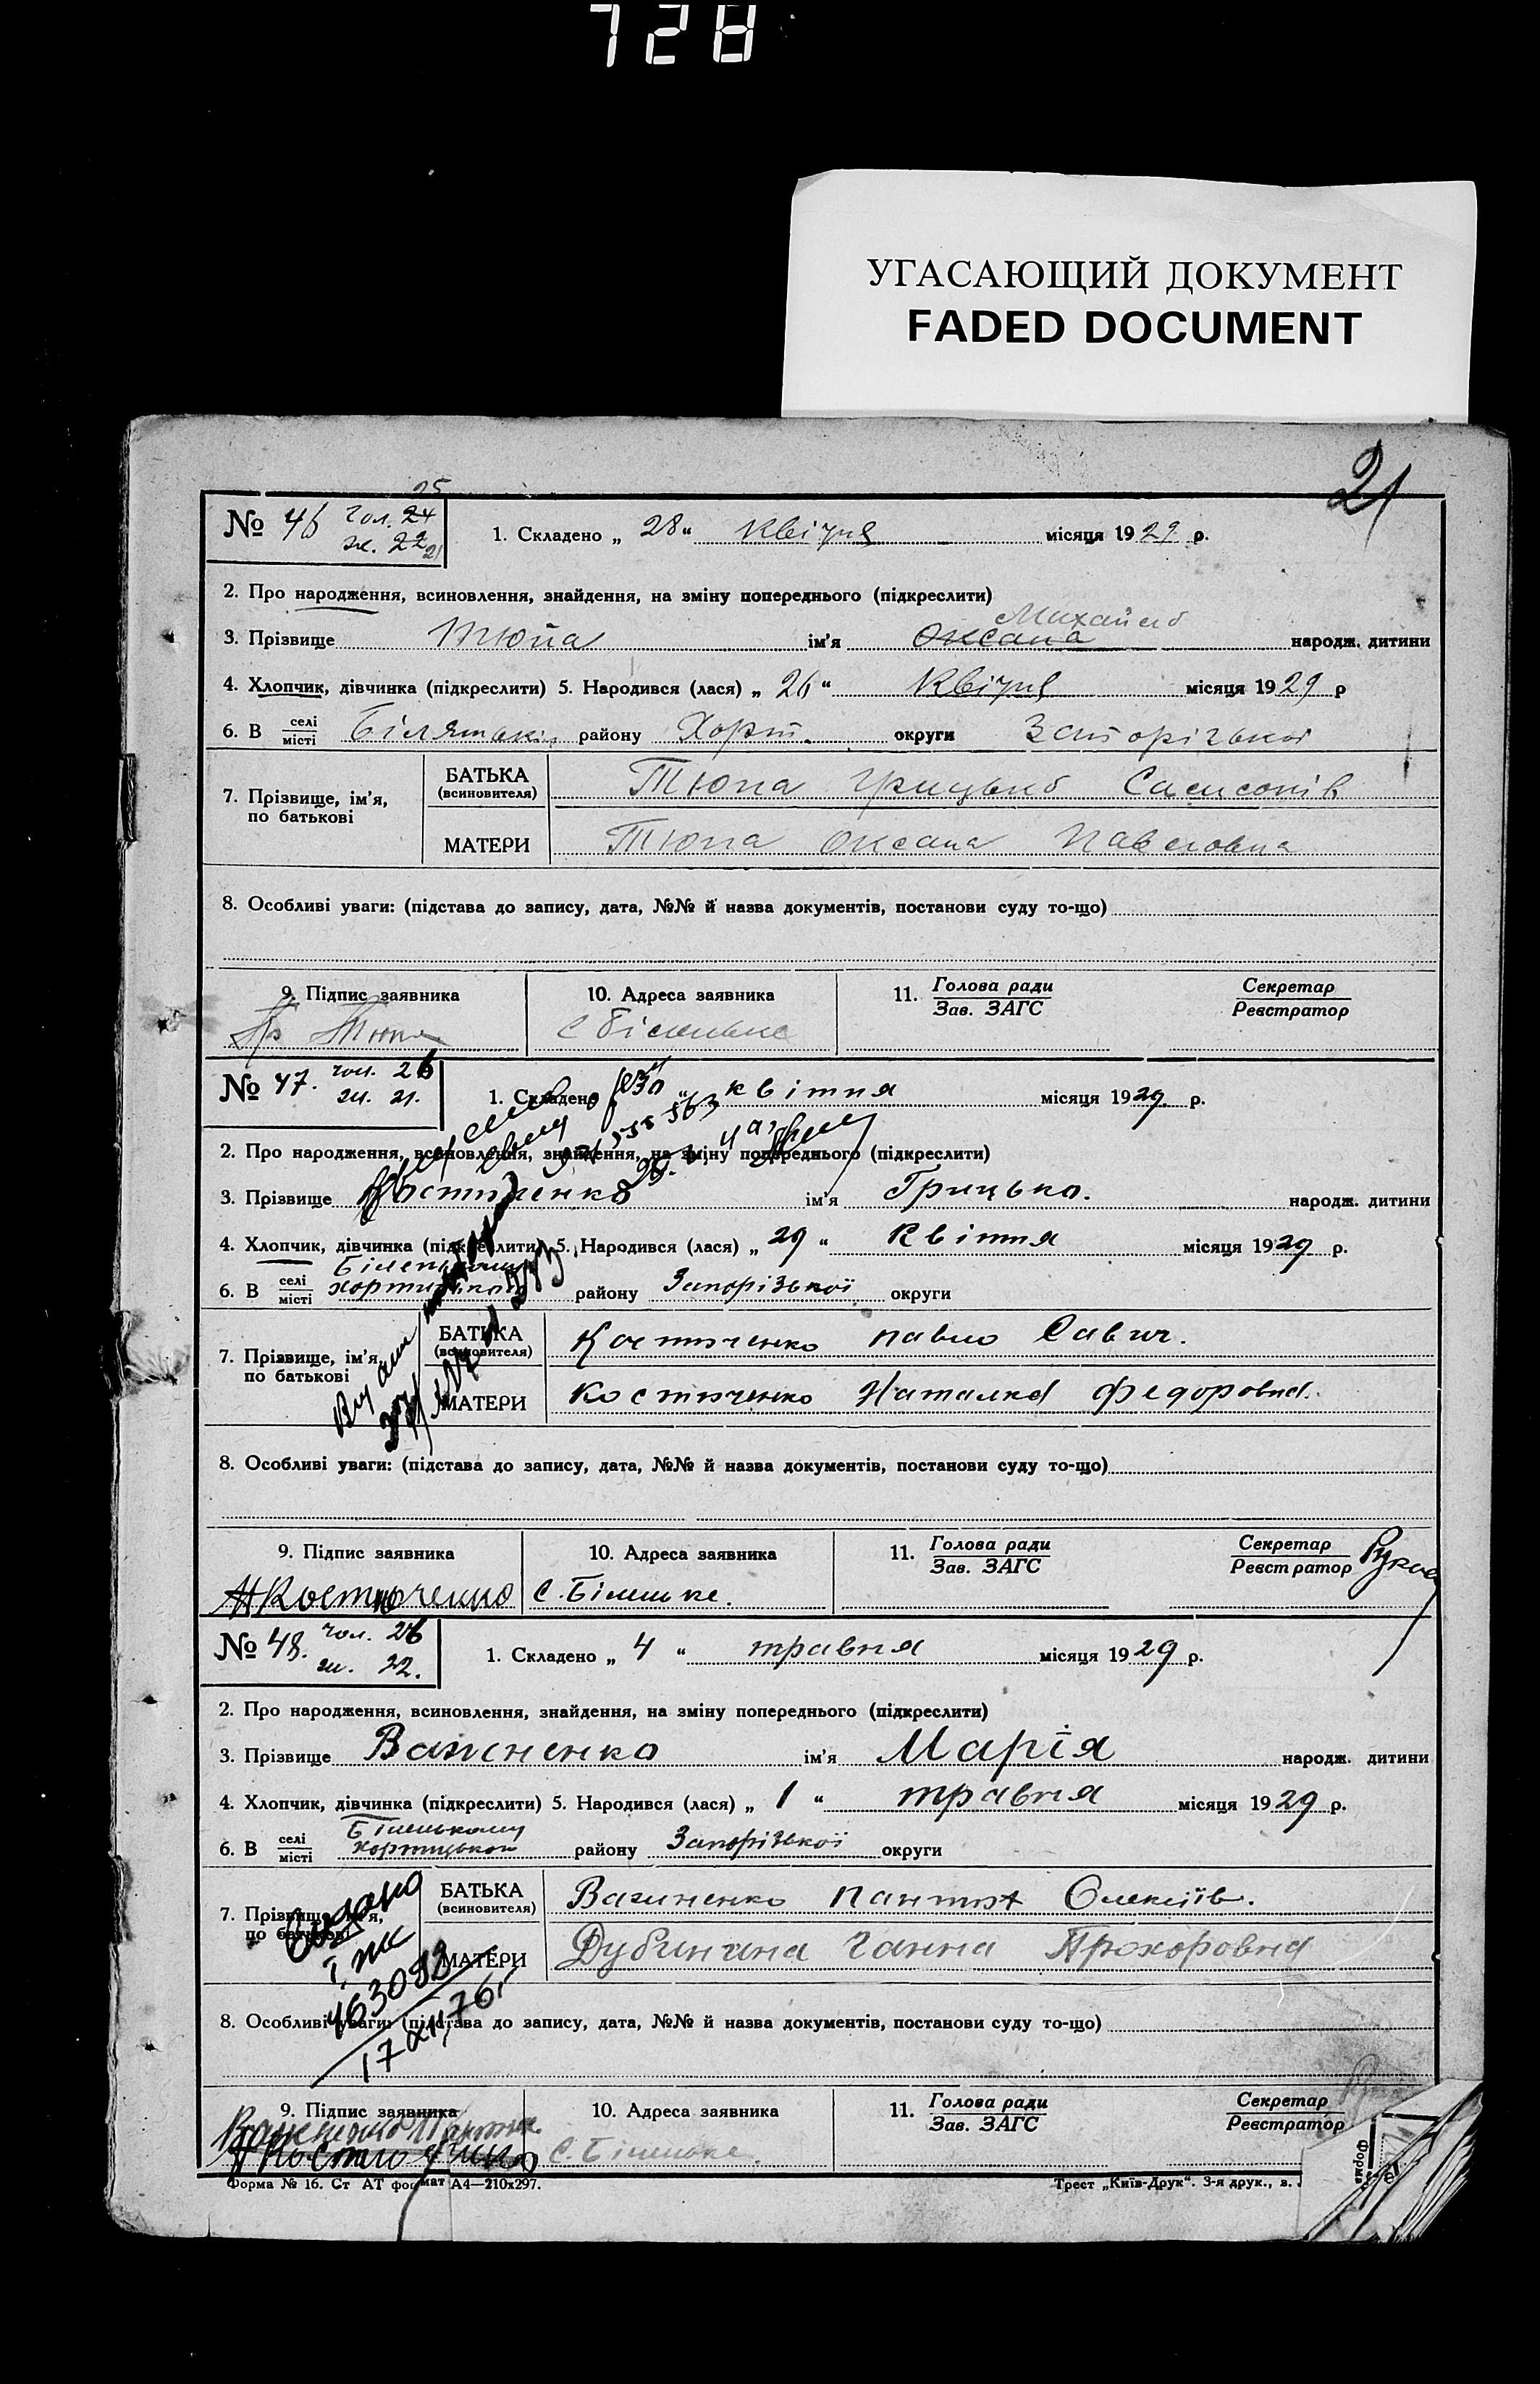 728
УГАСАЮЩИЙ ДОКУМЕНТ
FADED DOCUMENT
21
25
№ 46 чол. 24
ж. 22 21
1. Складено „ 28 “ квітня місяця 1929 р.
2. Про народження, всиновлення, знайдення, на зміну попереднього (підкреслити)
Михайло
3. Прізвище Тюпа ім'я Оксана народж. дитини
4. Хлопчик, дівчинка (підкреслити) 5. Народився (лася) „ 26 “ квітня місяця 1929 р
6. В селі/місті району Хорт. округи Запорізької
7. Прізвище, ім'я, по батькові
БАТЬКА (всиновителя) Тюпа Грицько Самсонів
МАТЕРИ Тюпа Оксана Павловна
8. Особливі уваги: (підстава до запису, дата, №№ й назва документів, постанови суду то-що)
9. Підпис заявника 10. Адреса заявника 11. Голова ради Секретар
Зав. ЗАГС Реєстратор
Гр Тюпа с Біленьке
№ 47. чол. 26
ж. 21.
1. Складено „ 30 “ квітня місяця 1929 р.
2. Про народження, всиновлення, знайдення, на зміну попереднього (підкреслити)
3. Прізвище Костюченко ім'я Грицько. народж. дитини
4. Хлопчик, дівчинка (підкреслити) 5. Народився (лася) „ 29 “ Квітня місяця 1929 р.
Біленькому
6. В селі/місті хортицького району Запорізької округи
7. Прізвище, ім'я, по батькові
БАТЬКА (всиновителя) Костюченко павло Савич.
МАТЕРИ Костюченко Наталка Федоровна.
8. Особливі уваги: (підстава до запису, дата, №№ й назва документів, постанови суду то-що)
9. Підпис заявника 10. Адреса заявника 11. Голова ради Секретар
Зав. ЗАГС Реєстратор
НКостюченко с. Біленьке.
№ 48. чол. 26
ж. 22.
1. Складено „ 4 “ травня місяця 1929 р.
2. Про народження, всиновлення, знайдення, на зміну попереднього (підкреслити)
3. Прізвище Важненко ім'я Марія народж. дитини
4. Хлопчик, дівчинка (підкреслити) 5. Народився (лася) „ 1 “ травня місяця 1929 р.
Біленькому
6. В селі/місті хортицького району Запорізької округи
7. Прізвище, ім'я, по батькові
БАТЬКА (всиновителя) Олексіїв.
МАТЕРИ Ганна Прохоровна
8. Особливі уваги: (підстава до запису, дата, №№ й назва документів, постанови суду то-що)
9. Підпис заявника 10. Адреса заявника 11. Голова ради Секретар
Зав. ЗАГС Реєстратор
с. Біленьке.
Форма № 16. Ст АТ формат А4—210х297.
Трест „Київ-Друк“. 3-я друк., з.